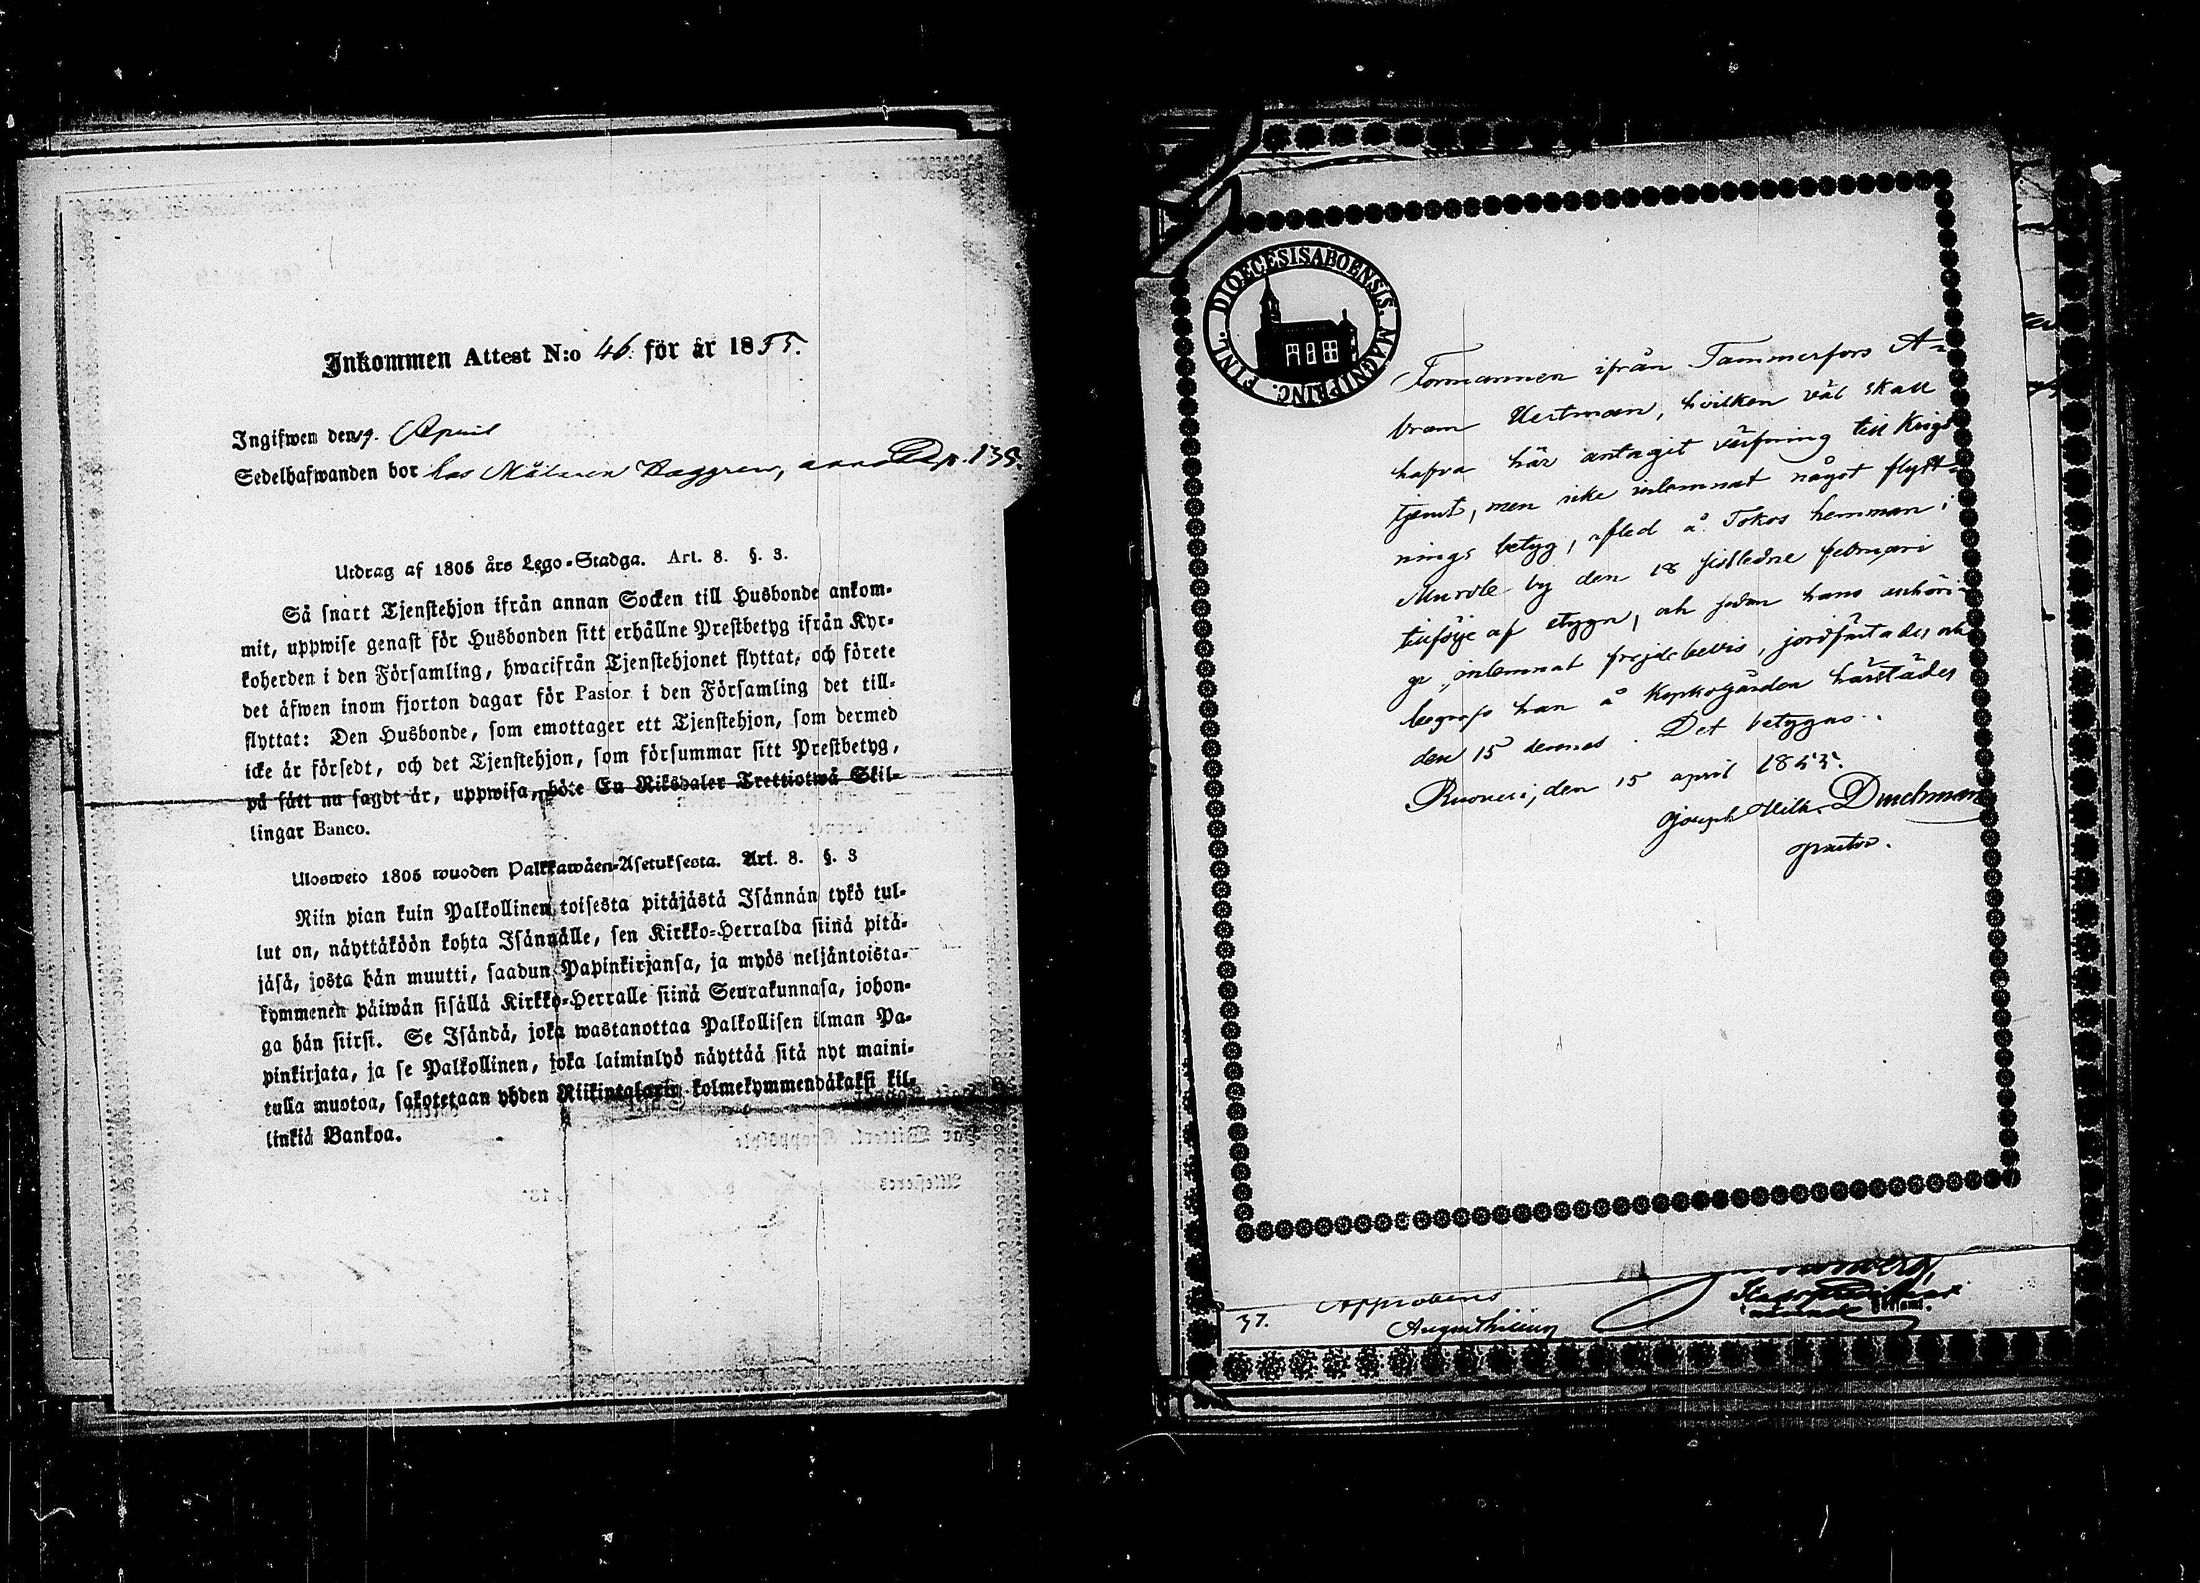 Inkommen Attest N:o 46. för år 1855.
Ingifwen den 19. April
Sedelhafwanden bor hos Målaren Haggren,
Utdrag af 1805 års Lego-Stadga. Art. 8. §. 3.
Så snart Tjenstehjon ifrån annan Socken till Husbonde ankom-
mit, uppwise genast för Husbonden sitt erhållne Prestbetyg ifrån Kyr-
koherden i den Församling, hwarifrån Tjenstehjonet flyttat, och förete
det äfwen inom fjorton dagar för Pastor i den Församling det till-
flyttat: Den Husbonde, som emottager ett Tjenstehjon, som dermed
icke är försedt, och det Tjenstehjon, som försummar sitt Prestbetyg,
på sätt nu sagdt är, uppwisa, böte En Riksdaler Trettiotwå Skil-
lingar Banco.
Ulosweto 1805 wuoden Palkkawäen-Asetuksesta. Art. 8. §. 3
Niin pian kuin Palkollinen toisesta pitäjästä Isännän tykö tul-
lut on, näyttäköön kohta Isännälle, sen Kirkko-Herralda siinä pitä-
jäsä, josta hän muutti, saadun Papinkirjansa, ja myös neljäntoista-
kymmenen päiwän sisällä Kirkko-Herralle siinä Seurakunnasa, johon-
ga hän siirsi. Se Isändä, joka wastanottaa Palkollisen ilman Pa-
pinkirjata, ja se Palkollinen, joka laiminlyö näyttää sitä nyt maini-
tulla muotoa, sakotetaan yhden Riikintalarin kolmekymmendäkaksi kil-
linkiä Bankoa.
FINL. DIOECESIS ABOENSIS. MAGNI PRINC.
Formannen ifrån Tammerfors A-
bram Hertman, hvilken väl skall
hafva här antagit värfning till Krigs
tjenst, men icke inlemnat något flytt-
nings betyg, afled å Tokos hemman i
Murole by den 18 sistledne februari
till följe af styng, och sedan hans anhöri-
ge inlemnat frejdebevis, jordfästades och
begrofs han å Kyrkogården härstädes
den 15 dennes. Det betygas.
Ruovesi, den 15 april 1855.
Joseph Wilh. Durchman
pastor.
37. Approberas